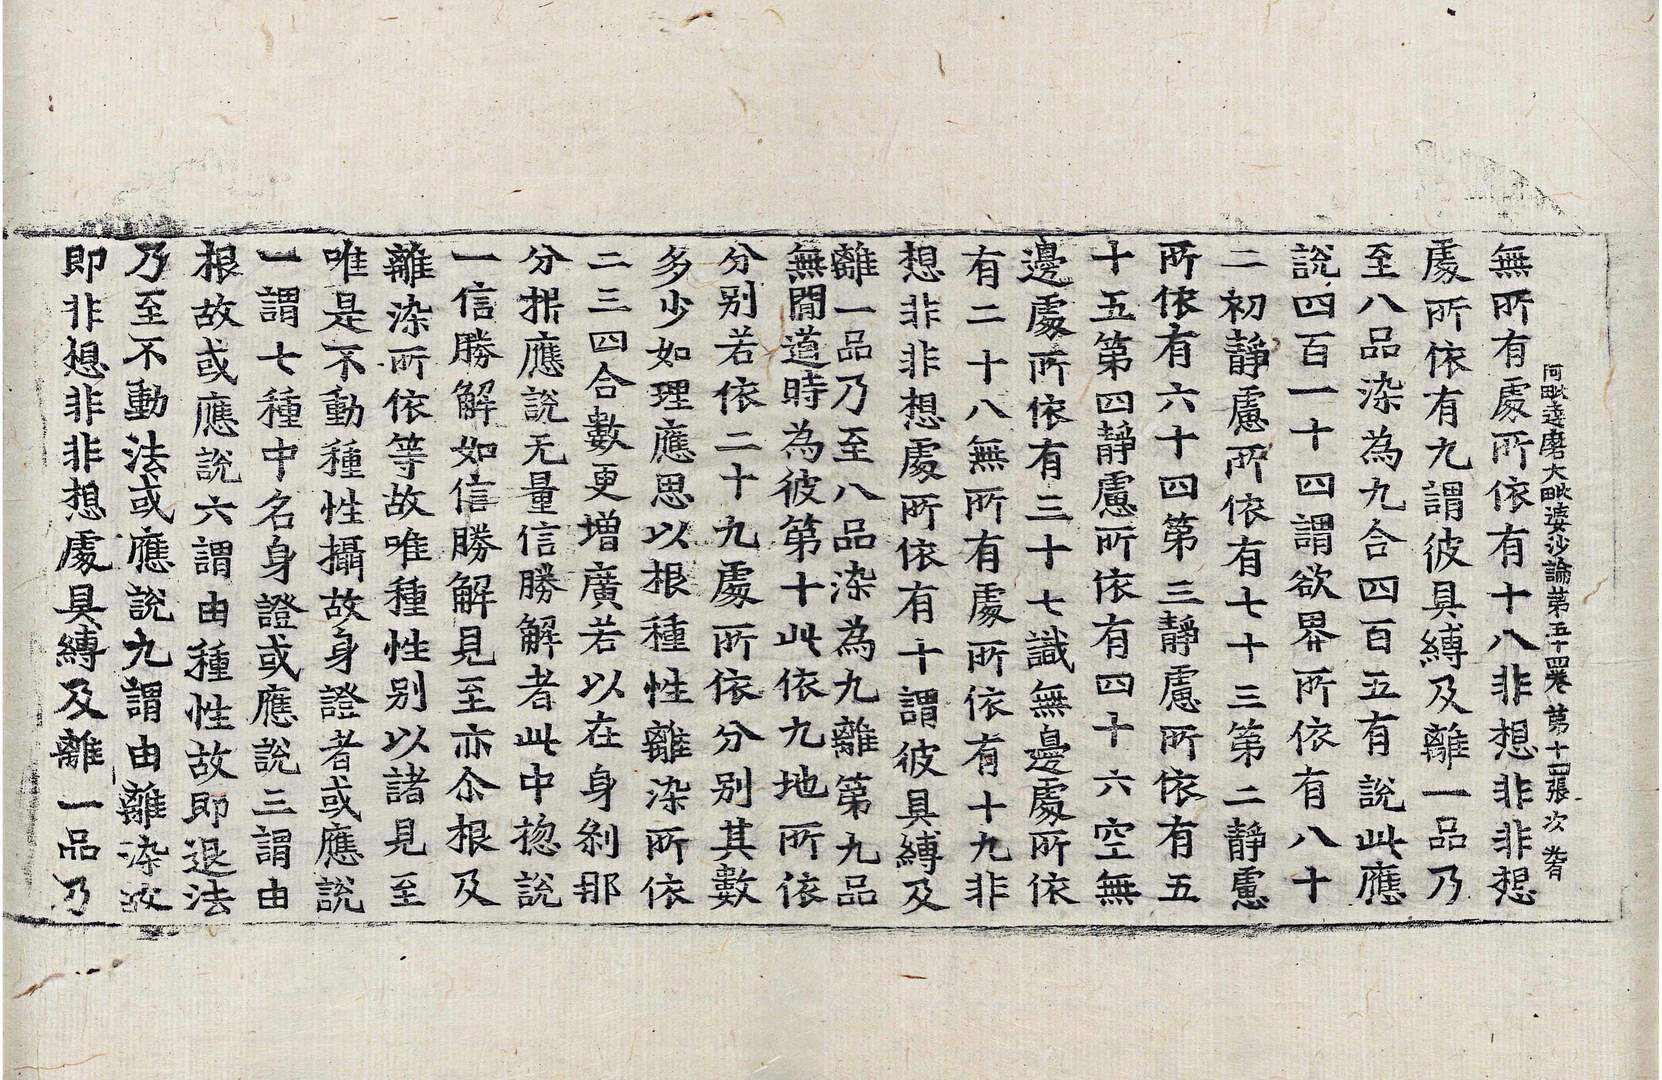 阿毗達磨大毗婆沙論第五十四卷 第十四張 次
無所有處所依有十八非想非非想
處所依有九謂彼具縛及離一品乃
至八品染為九合四百五有說此應
說四百一十四謂欲界所依有八十
二初靜慮所依有七十三第二靜慮
所依有六十四第三靜慮所依有五
十五第四靜慮所依有四十六空無
邊處所依有三十七識無邊處所依
有二十八無所有處所依有十九非
想非非想處所依有十謂彼具縛及
離一品乃至八品染為九離第九品
無閒道時為彼第十此依九地所依
分別若依二十九處所依分別其數
多少如理應思以根種性離染所依
二三四合數更增廣若以在身剎那
分析應說无量信勝解者此中惣說
一信勝解如信勝解見至亦尒根及
離染所依等故唯種性別以諸見至
唯是不動種性攝故身證者或應說
一謂七種中名身證或應說三謂由
根故或應說六謂由種性故即退法
乃至不動法或應說九謂由離染故
即非想非非想處具縛及離一品乃